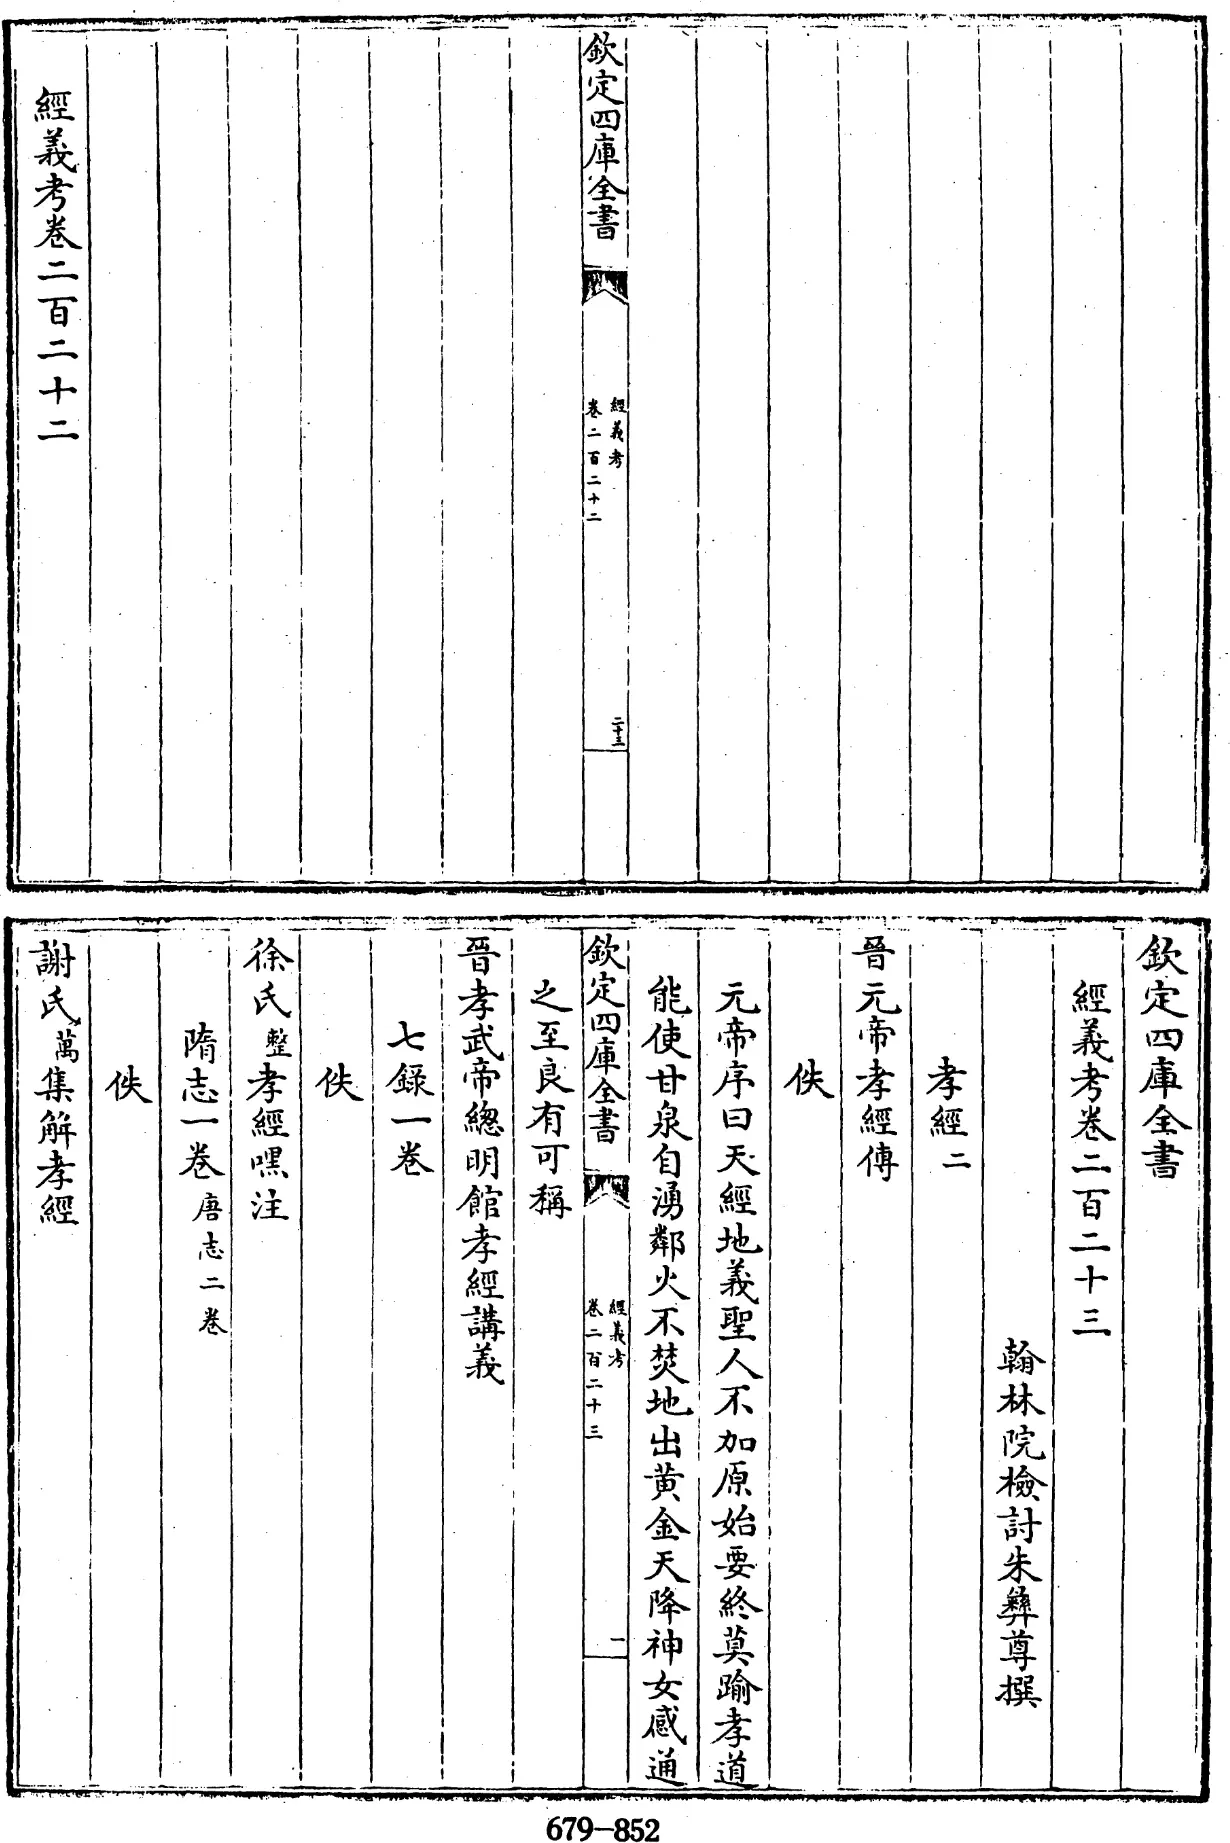 欽定四庫全書
經義考
卷二百二十二
二十三
經義考卷二百二十二
欽定四庫全書
經義考卷二百二十三
翰林院檢討朱彝尊撰
孝經二
晉元帝孝經傳
佚
元帝序曰天經地義聖人不加原始要終莫踰孝道
能使甘泉自湧鄰火不焚地出黄金天降神女感通
欽定四庫全書
經義考
卷二百二十三
一
之至良有可稱
晉孝武帝總明館孝經講義
七錄一卷
佚
徐氏整孝經嘿注
隋志一卷唐志二卷
佚
謝氏萬集解孝經
679-852